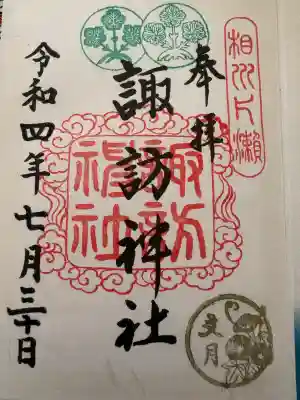 相州片瀬
奉拝
諏訪神社
諏訪
神社
令和四年七月三十日
文月